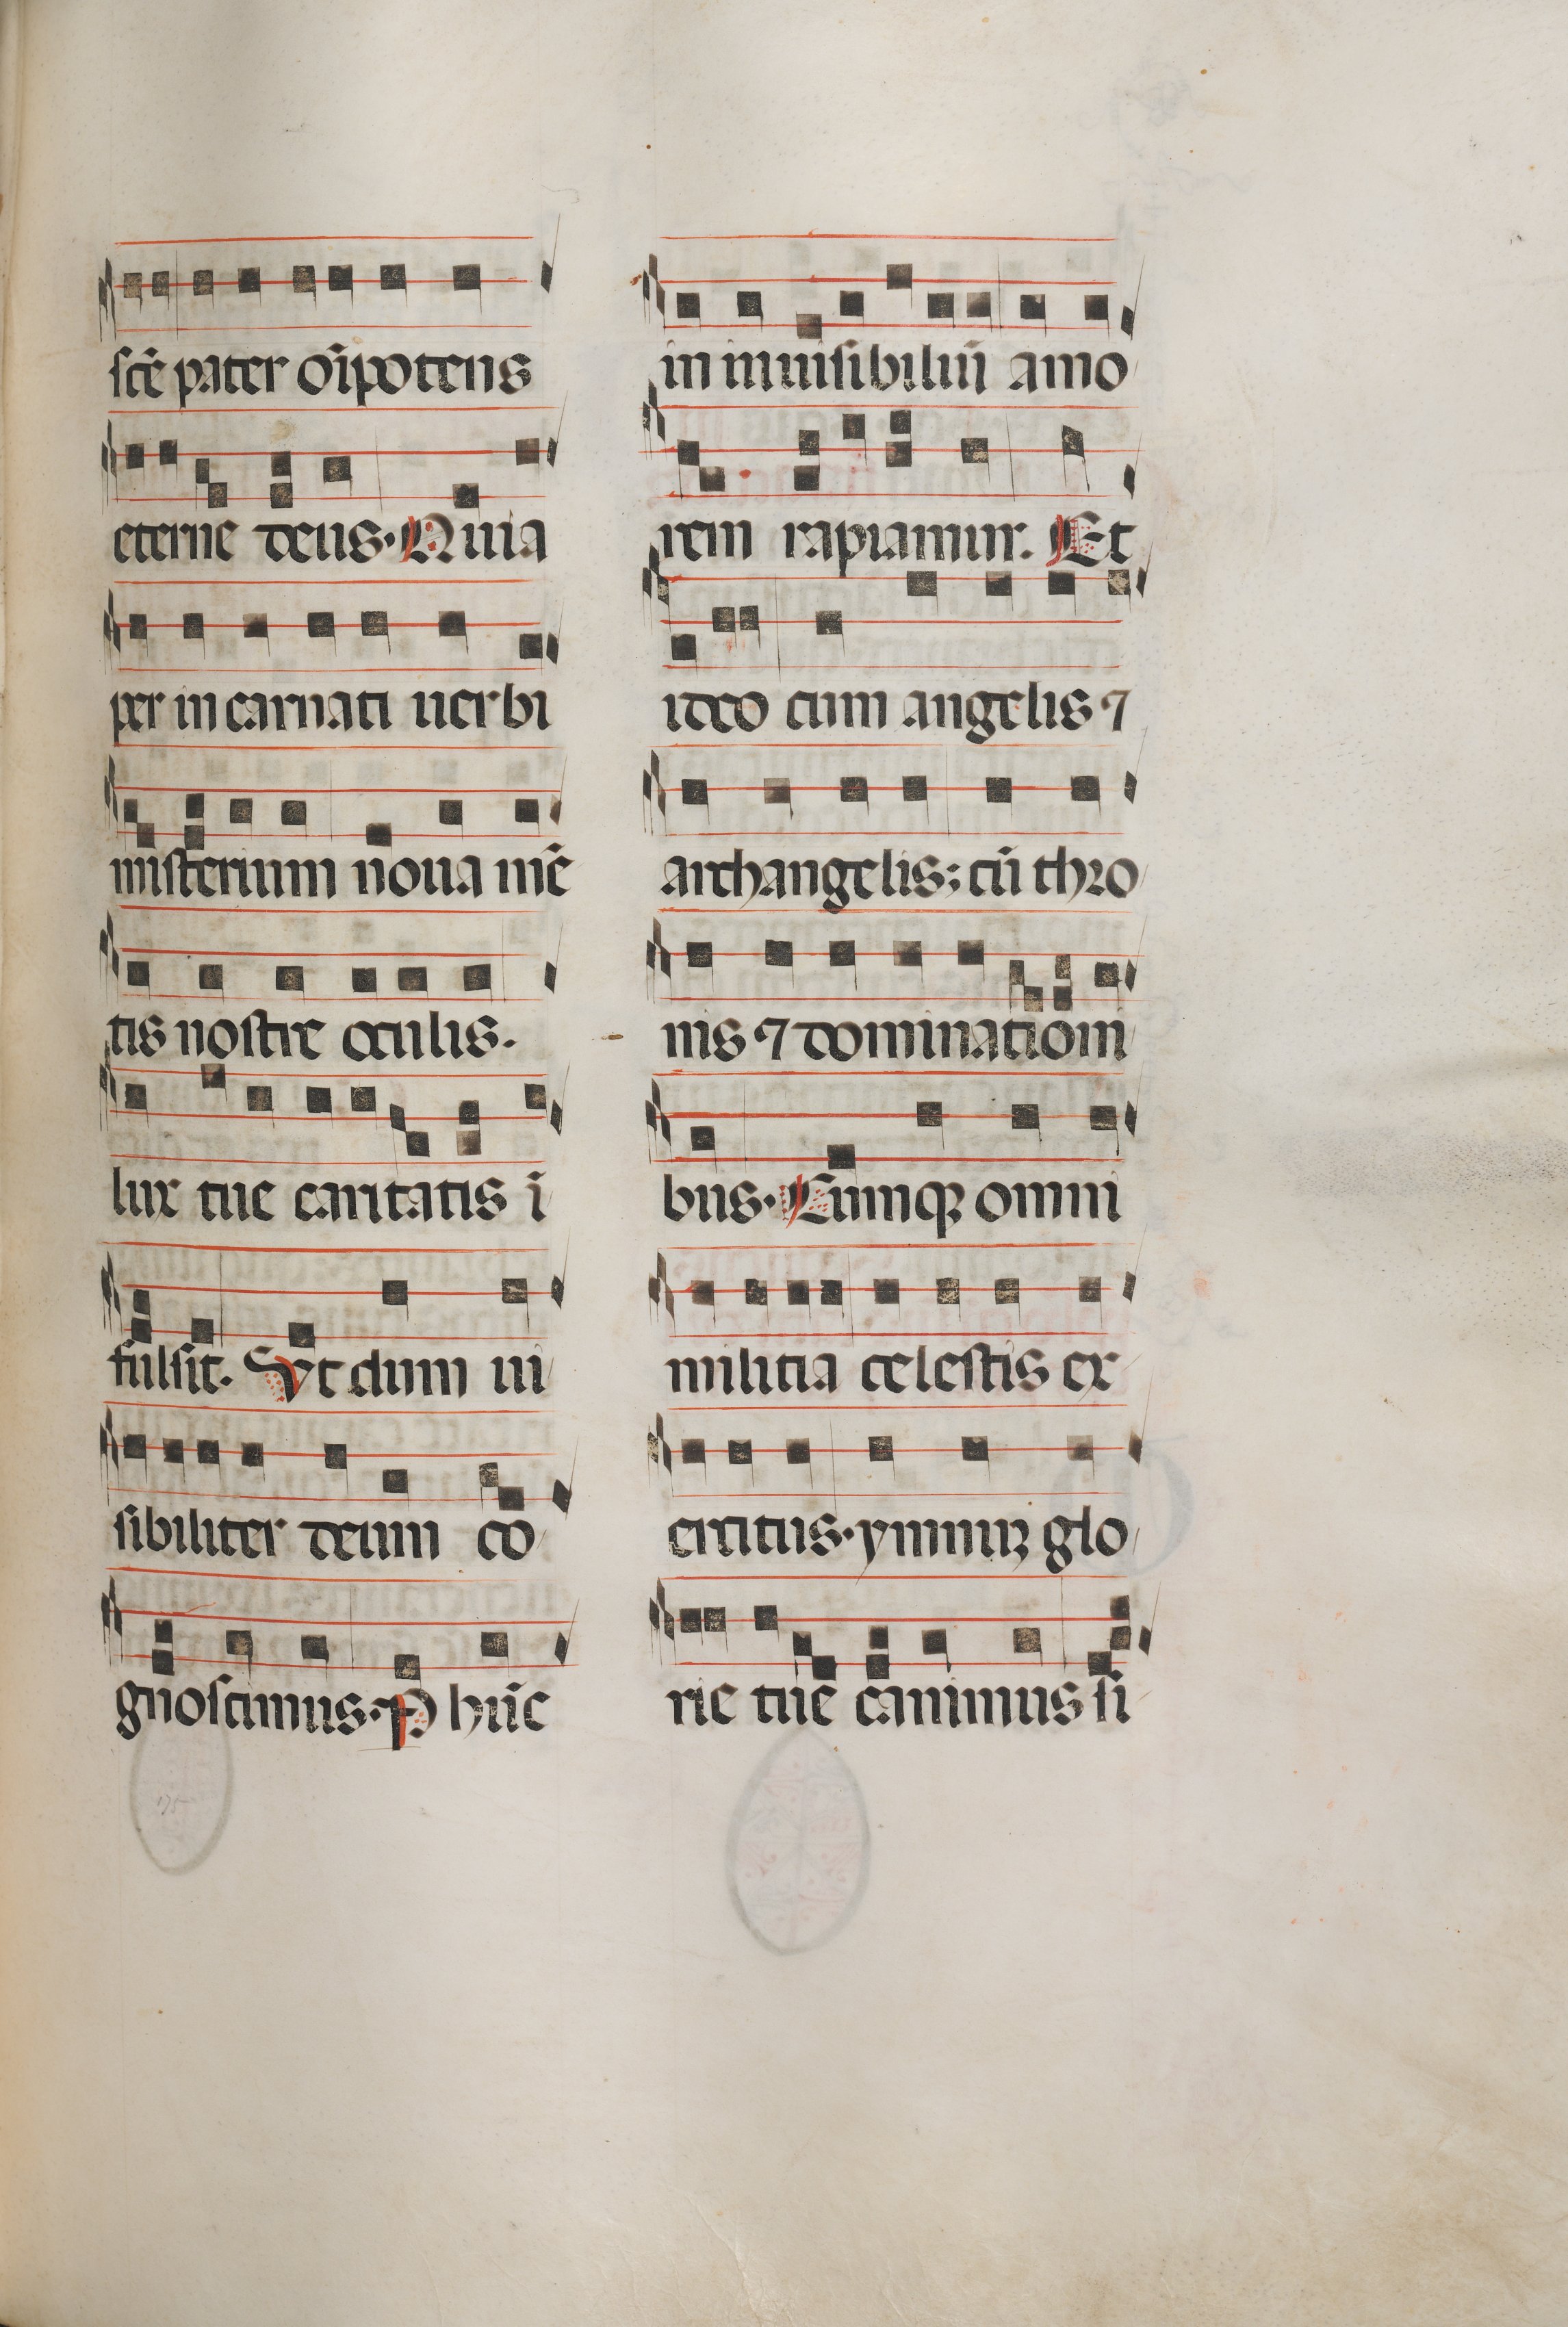 sc̄e pater oīpotens
eterne deus. Quia
per incarnati uerbi
misterium noua mē
tis nostre oculis.
lux tue caritatis ī
fulsit. Vt dum ui
sibiliter deum co
gnoscimus. P hūc
in inuisibiliū amo
rem rapiamur. Et
ideo cum angelis ⁊
archangelis; cū thro
nis ⁊ dominationi
bus. Cumqꝫ omni
militia celestis ex
ercitus. ymnuꝫ glo
rie tue canimus si